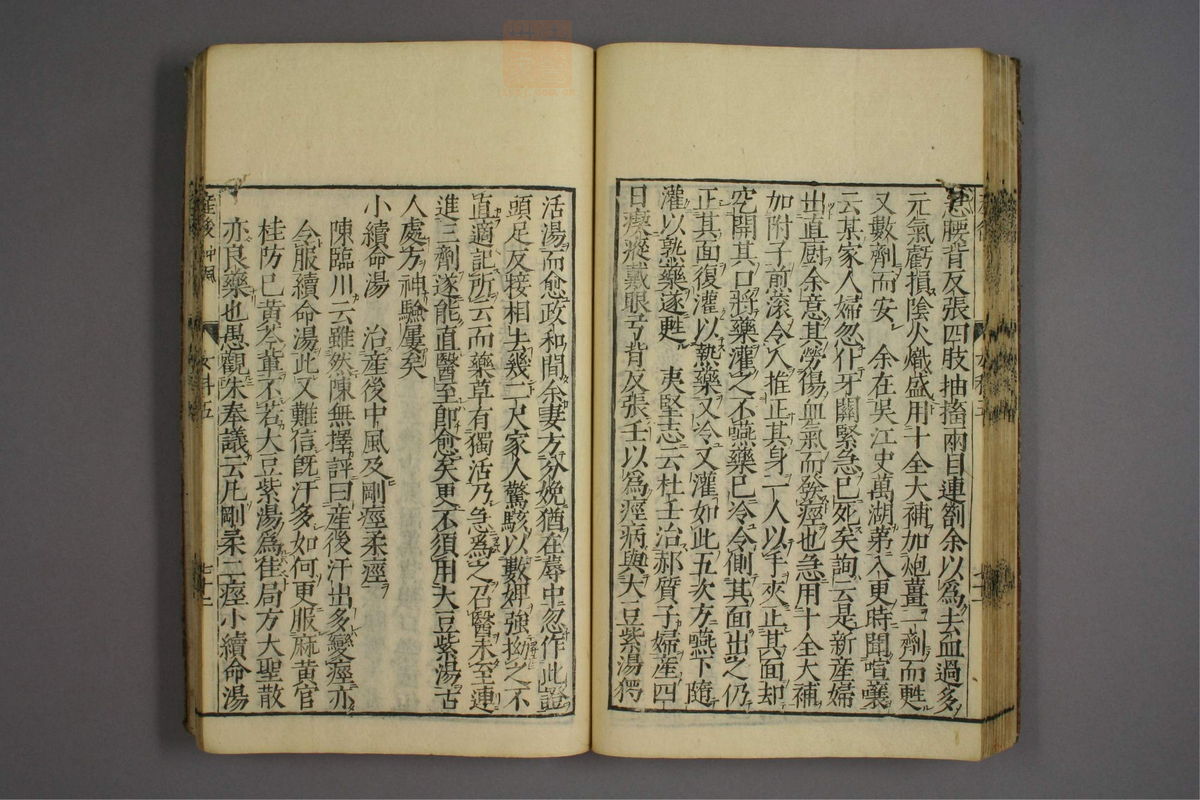 急腰背反張四肢抽搐兩目連劄余以爲去血過多
元氣虧損陰火熾盛用十全大補加炮薑一劑而甦
又數劑而安　余在吳江史萬湖第入更時聞喧嚷
云某家人婦忽仆牙關緊急已死矣詢云是新產婦
出直厨余意其勞傷血氣而發痙也急用十全大補
如附子前滚令人推正其身一人以手夾正其面却
空開其口將藥灌之不嚥藥已冷令側其面出之仍
正其面復灌以熱藥又冷又灌如此五次方嚥下隨
灌以熱藥遂甦　夷堅志云杜壬治郝質子婦產四
日瘈瘲戴眼弓背反張壬以爲痙病與大豆紫湯獨
活湯而愈政和間余妻方分娩猶在蓐中忽作此證
頭足反接相去幾二尺家人驚駭以數婢強拗之不
直適記所云而藥草有獨活乃急爲之召醫未至連
進三劑遂能直醫至卽愈矣更不須用大豆紫湯古
人處方神驗屢矣
小續命湯　治產後中風及剛痙柔痙
陳臨川云雖然陳無擇評曰產後汗出多變痙亦
令服續命湯此又難信旣汗多如何更服麻黃官
桂防已黃芩輩不若大豆紫湯爲佳局方大聖散
亦良藥也愚觀朱奉議云凡剛柔二痙小續命湯
產後中風
女科五